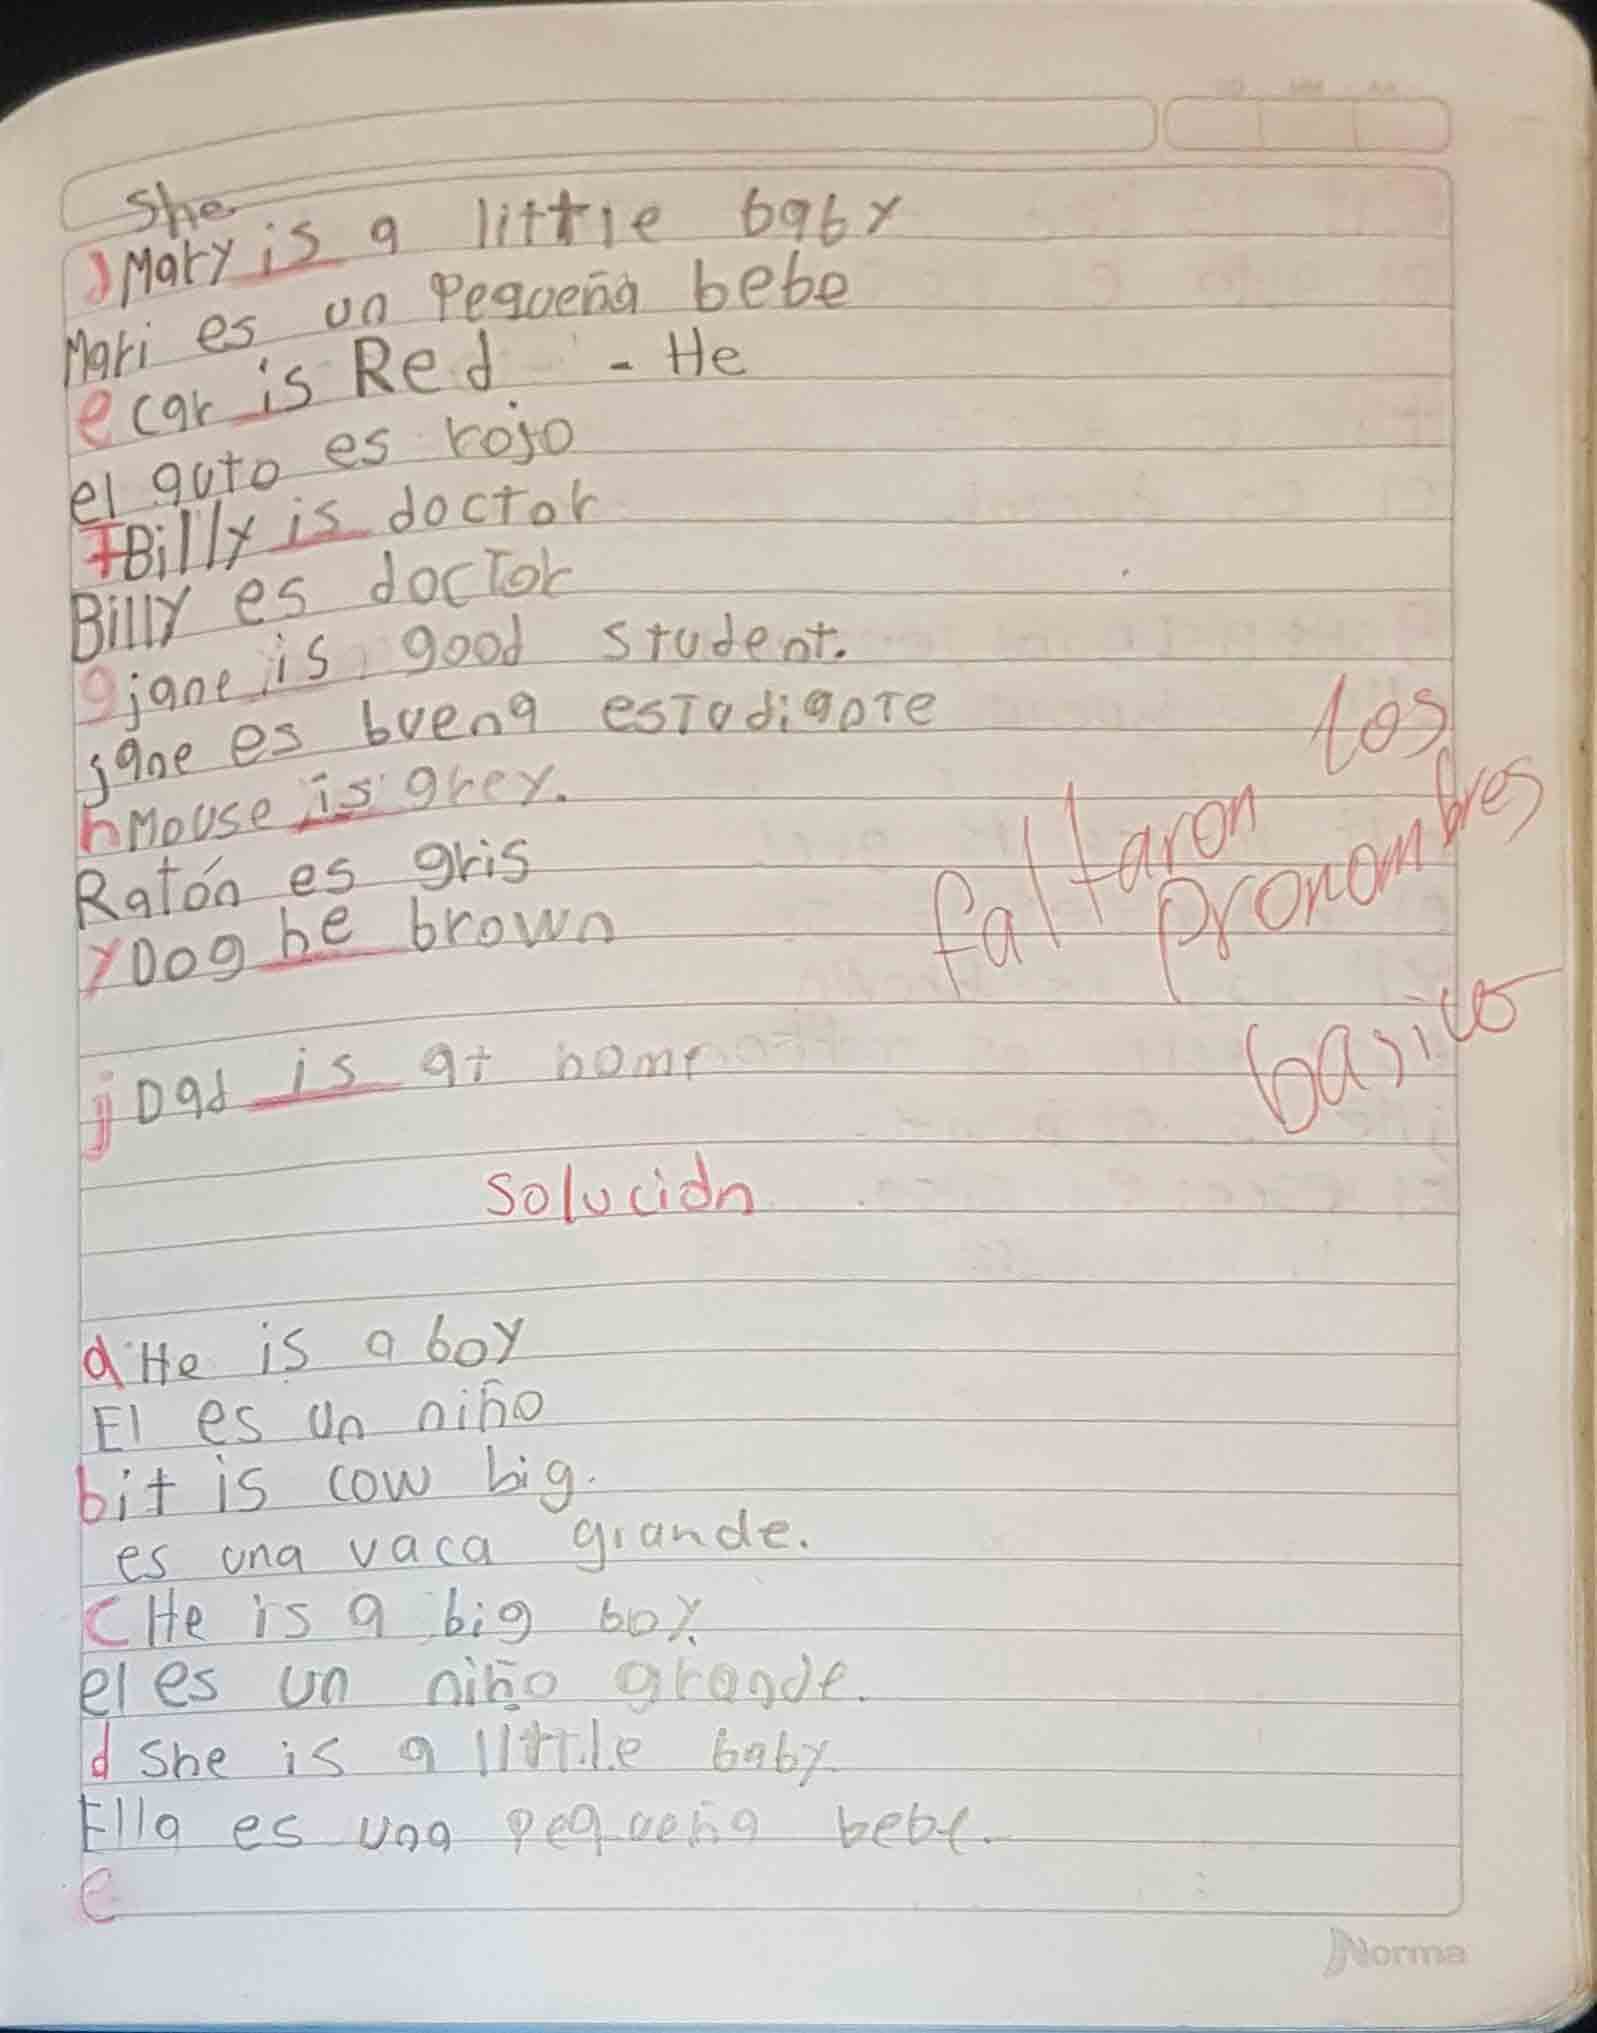 She
) Mary is a little baby
Mari es un Pequeña bebe
e car is Red - He
el auto es rojo
f Billy is doctor
Billy es doctor
g jane is good student.
jane es buena estudiante
h Mouse is grey.
Ratón es gris
y Dog he brown
faltaron los
pronombres
basicos
j Dad is at home
Solución
a He is a boy
El es un niño
b it is cow big.
es una vaca grande.
c He is a big boy.
el es un niño grande.
d She is a little baby
Ella es una pequeña bebe.
e
Norma